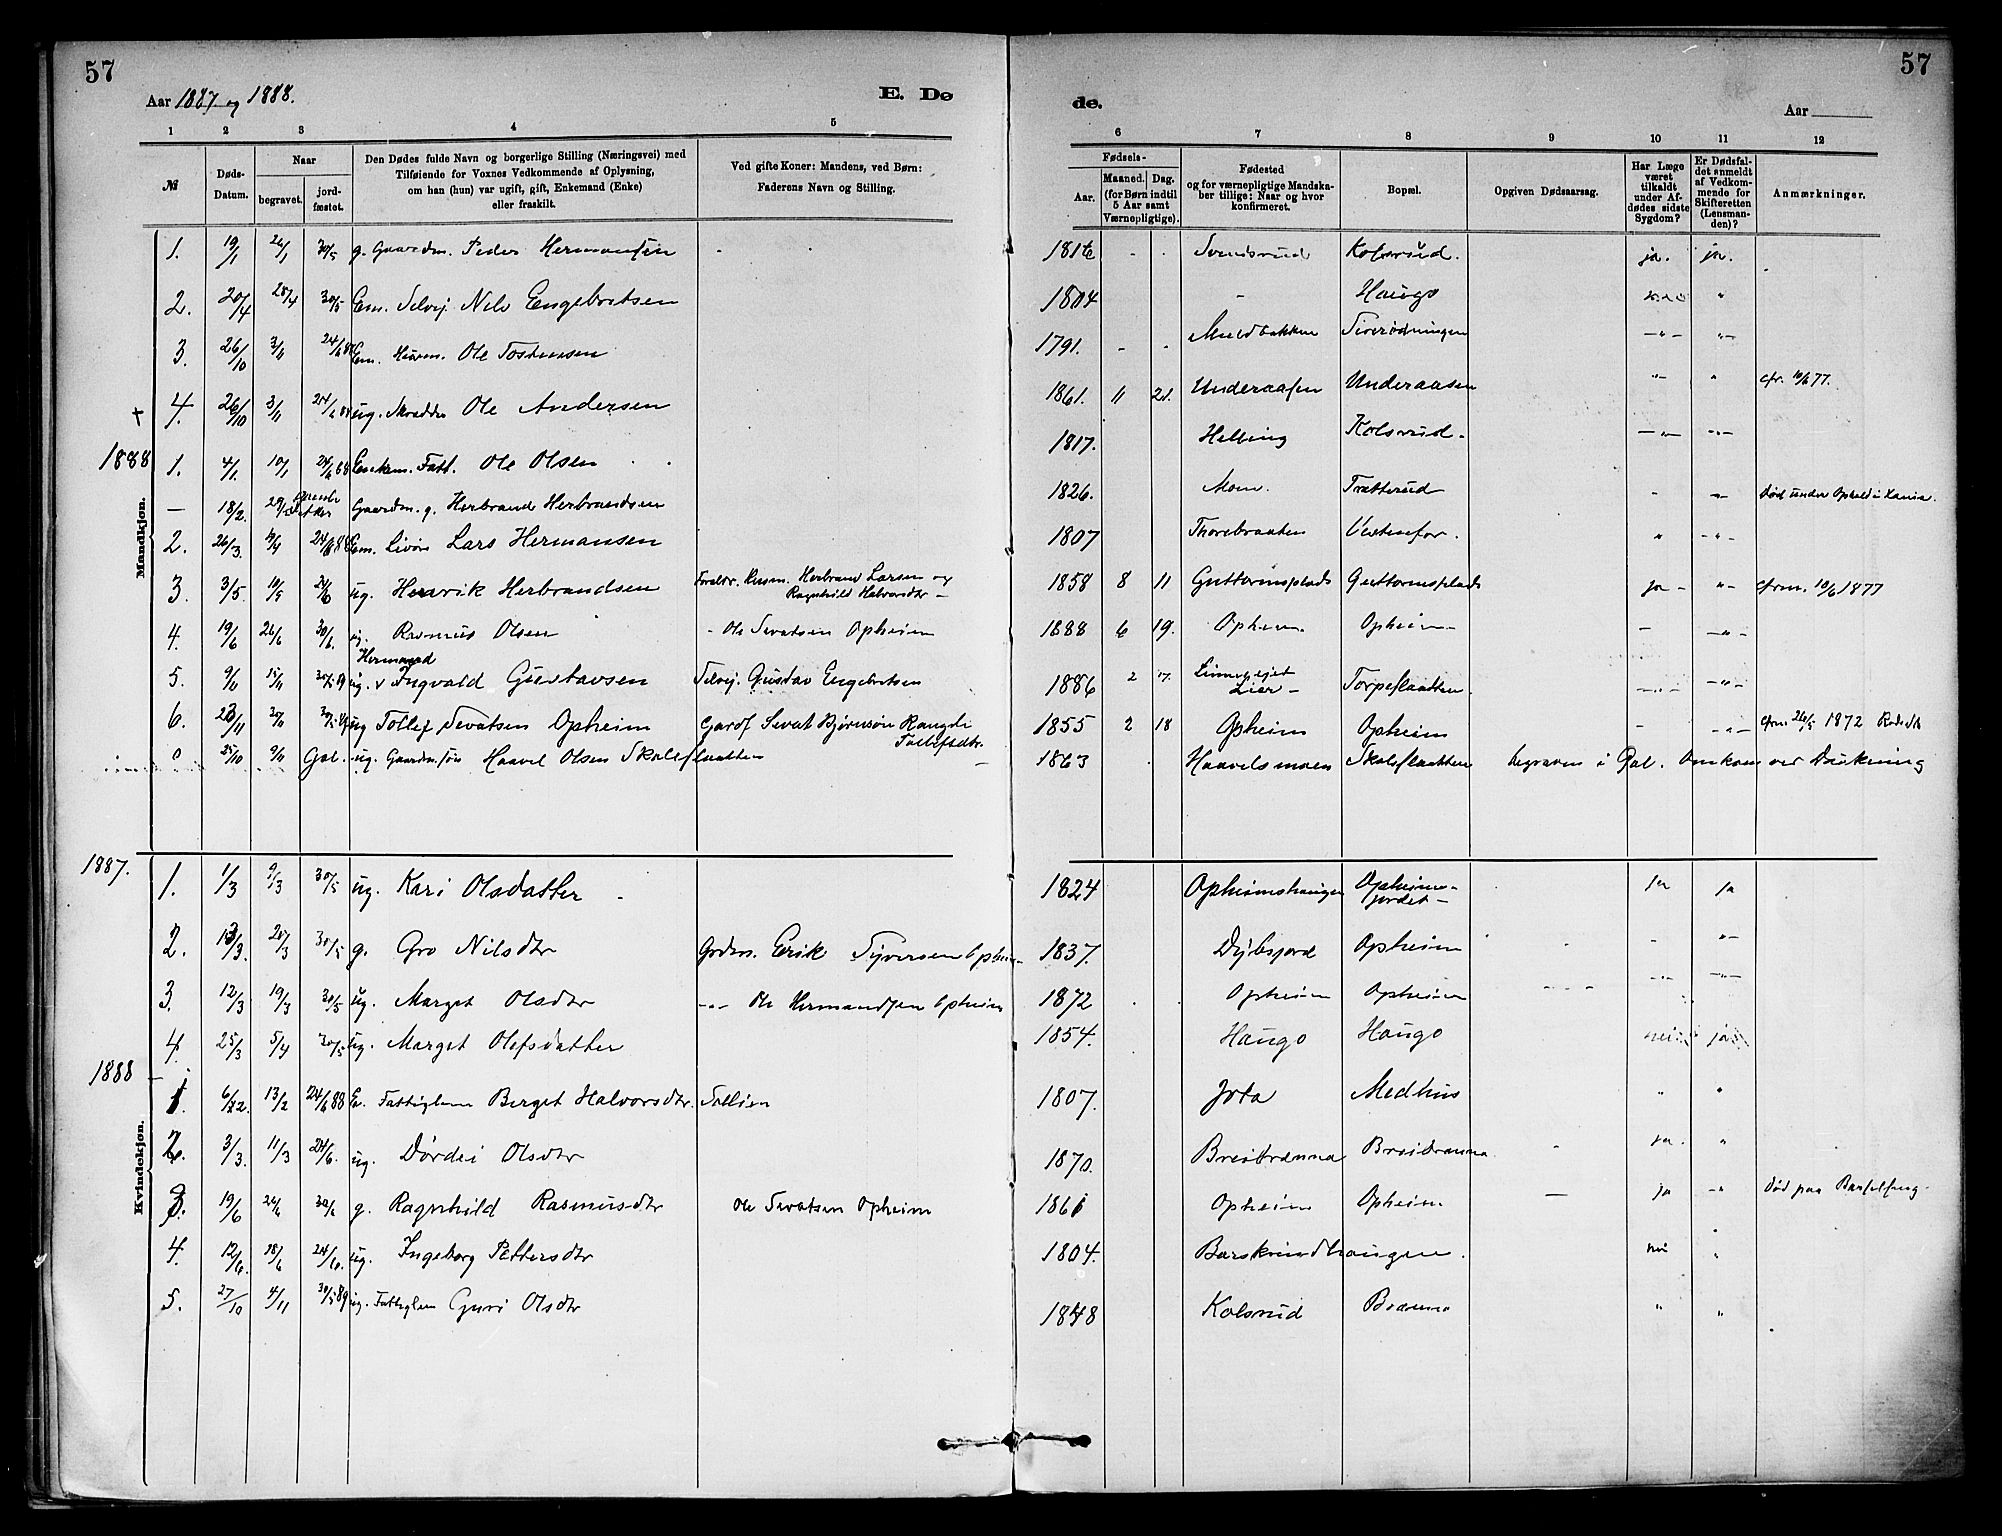 57
57
Aar 1887 og 1888.
E. Dø
de.
Aar
1 2 3 4 5 6 7 8 9 10 11 12
№
Døds-Datum.
Naar
begravet.
jord-fæstet.
Den Dødes fulde Navn og borgerlige Stilling (Næringsvei) med
Tilføiende for Voxnes Vedkommende af Oplysning,
om han (hun) var ugift, gift, Enkemand (Enke)
eller fraskilt.
Ved gifte Koner: Mandens, ved Børn:
Faderens Navn og Stilling.
Fødsels-
Aar.
Maaned. Dag.
(for Børn indtil
5 Aar samt
Værnepligtige).
Fødested
og for værnepligtige Mandska-
ber tillige: Naar og hvor
konfirmeret.
Bopæl.
Opgiven Dødsaarsag.
Har Læge
været
tilkaldt
under Af-
dødes sidste
Sygdom?
Er Dødsfal-
det anmeldt
af Vedkom-
mende for
Skifteretten
(Lensman-
den)?
Anmærkninger.
Mandkjøn.
1. 19/1 26/1 30/5 g. Gaardm. Peder Hermansen 1816 Svendsrud Kolsrud. ja. ja.
2. 20/4 28/4 30/5 Em. Selvej. Nils Engebretsen 1804 - Haugo
3. 26/10 3/11 24/6 88 Em. Ole Tostensen 1791. Muldbakken
4. 26/10 3/11 24/6 88 ug. Skrædder Ole Andersen 1861. 11 21. Underaasen Underaasen cfr. 10/6 77.
1888
1. 4/1 10/1 24/6 88 Enkem. Fatt. Ole Olsen 1817. Helling Kolsrud.
— 18/2. Gaardm. g. Herbrand Herbrandsen 1826. Moen. Trætterud Død under Ophold i Xania.
2. 26/3. 4/4 24/6 88 Em. Lars Hermansen 1807 Thorebraaten Vestenfor.
3. 3/5. 10/5 24/6 ug. Henrik Herbrandsen Foreldr. Husm. Herbrand Larsen og
Ragnhild Halvorsdtr 1858 8 11 Guttormsplads Guttormsplads ja cfrm. 10/6 1877
4. 19/6 26/6 30/6. ug. Rasmus Olsen - Ole Sevatsen Opheim 1888 6 19. Opheim. Opheim
Hermand
5. 9/11 15/11 ug. v Ingvald Gustavsen Selvej. Gustav Engebretsen 1886 2 17. Lier Torpeslaatten.
6. 23/11 30/11 ug Tollef Sevatsen Opheim Gardf Sevat Bjørnsøn Rangdi
Tollefsdtr. 1855 2 18 Opheim Opheim cfrm. 26/5 1872
0 25/10 9/11 Gol. ug. Gaardm. søn Haavel Olsen Skoleslaatten 1863 Haavelsmoen Skoleslaatten begraven i Gol. Omkom ved Drukning
Kvindekjøn.
1887.
1. 1/3 9/3 30/5 ug. Kari Olsdatter 1824 Opheimshaugen Opheims-
jordet ja ja
2. 13/3. 20/3 30/5 g. Gro Nilsdtr Grdm. Erik Syversen Opheim 1837. Dybsjord Opheim
3. 12/3 19/3 30/5 ug. Marget Olsdtr --- Ole Hermandsen Opheim 1872 Opheim Opheim
4. 25/3 5/4 30/5 ug. Marget Olefsdatter 1854. Haugo Haugo nei ja
1888
1. 6/2. 13/2 24/6 88 E. Fattiglem Berget Halvorsdtr. Sollien 1807. Jota Medhus
2. 3/3. 11/3 24/6. ug. Dørdei Olsdtr 1870. Breibrænna Breibrænna ja.
3. 19/6 26/6 30/6 g. Ragnhild Rasmusdtr Ole Sevatsen Opheim 1861 Opheim Opheim ja Død paa Barselseng.
4. 12/6. 18/6 24/6. ug. Ingeborg Pettersdtr 1804. Barskrindhaugen. nei
5. 27/10 4/11 30/5 89 ug. Fattiglem Guri Olsdtr 1848 Kolsrud Brænna